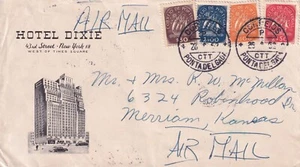 AIR MAIL
HOTEL DIXIE
43rd Street - New York 18
WEST OF TIMES SQUARE
CORREIOS
CTT
PONTA DEL GADA
CTT
PONTA DEL GADA
Mr. + Mrs. R. W. McMillan
6324 Robinhood Dr.
Merriam, Kansas
AIR MAIL